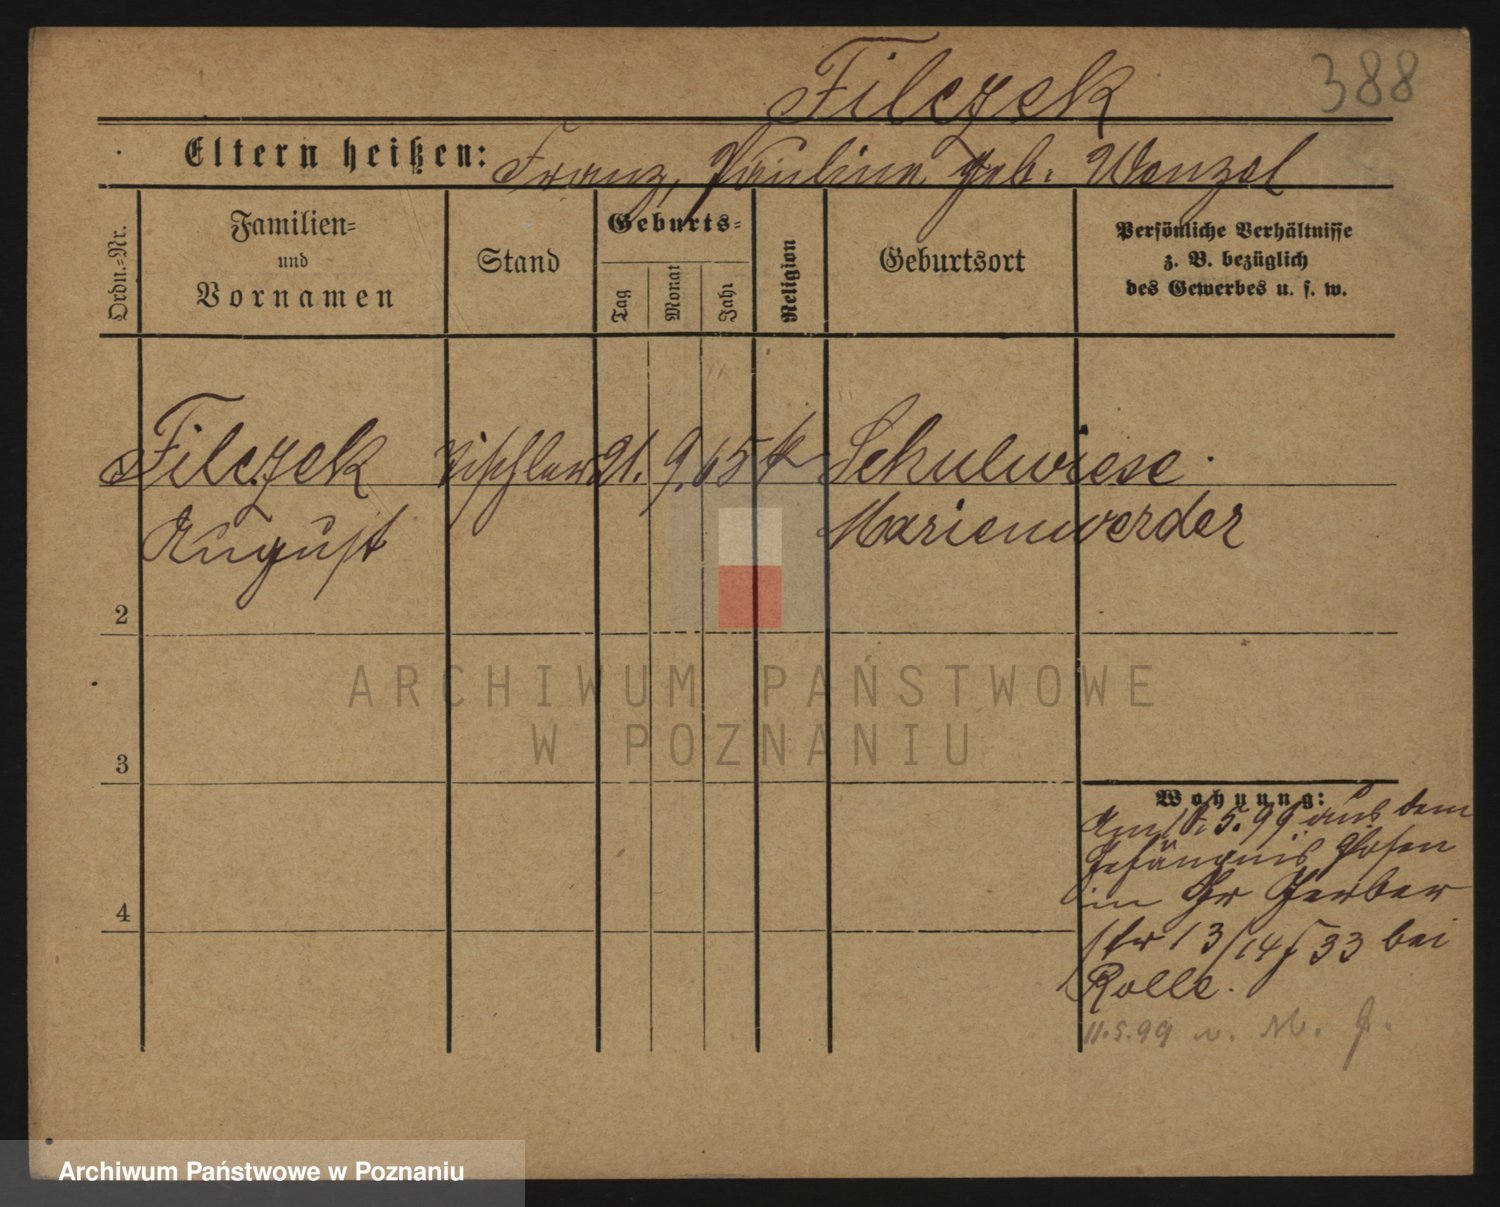 388
Filczek
Eltern heißen: Franz, Pauline geb. Wenzel
Ordn.-Nr.
Familien-
und
Vornamen
Stand
Geburts-
Tag
Monat
Jahr
Religion
Geburtsort
Persönliche Verhältnisse
z. B. bezüglich
des Gewerbes u. s. w.
Filczek Tischler 21. 9. 65 k Schulwiese
August Marienwerder
2
3
4
Wohnung:
5. 99 aus dem
Gefängnis Posen
in Gr Gerber
str 13/14 33 bei
Rolle.
11.5.99 n. M. J.
ARCHIWUM PAŃSTWOWE
W POZNANIU
Archiwum Państwowe w Poznaniu